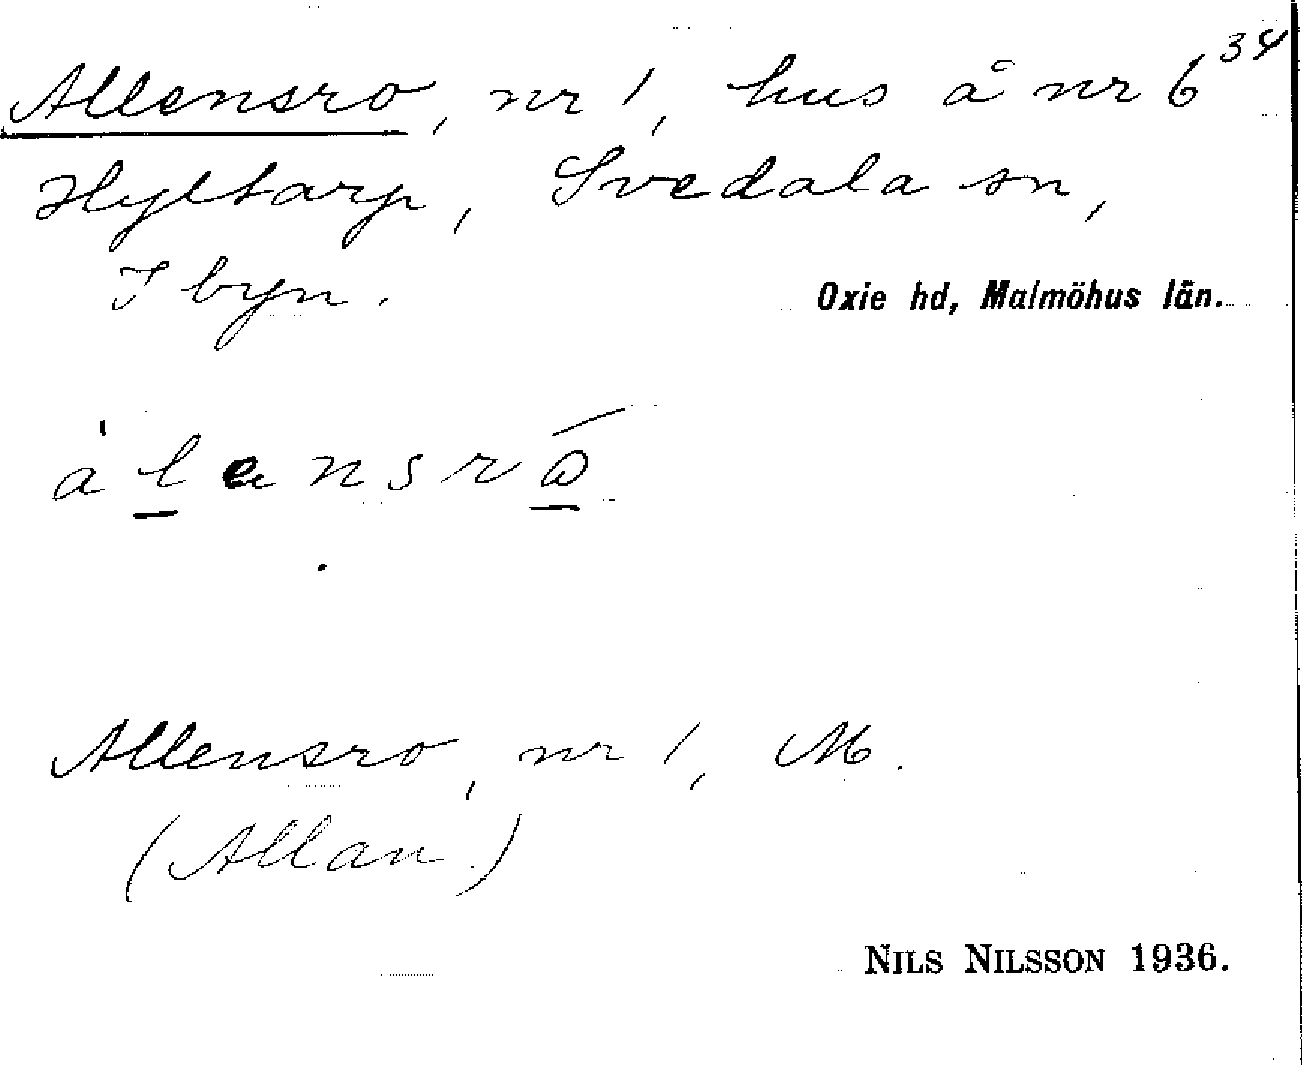 Allensro, nr 1, hus å nr 6³⁴
Hyltarp, Svedala sn,
I byn.
Oxie hd, Malmöhus län.
àlensró
Allensro, nr 1, M.
(Allan.)
NILS NILSSON 1936.